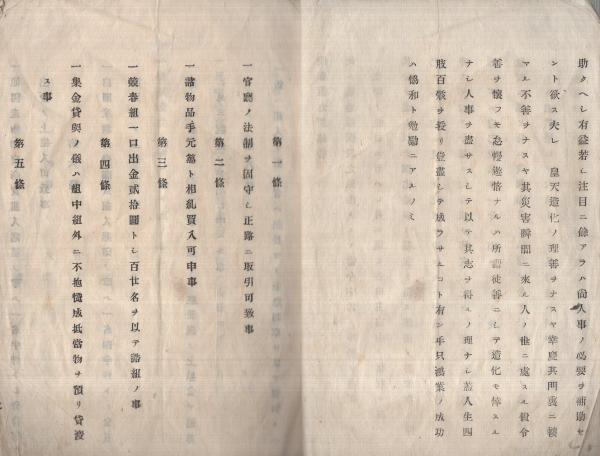 助クヘシ有益若シ注目ニ餘アラハ尚人事ノ必要ヲ補助セ
ント欲ス夫レ 皇天造化ノ理善ヲナスヤ幸慶其門裏ニ輳
マル不善ヲナスヤ其災害瞬間ニ來ル人ノ世ニ處スル假令
善ヲ懷フモ怠慢遊惰ナルハ所謂徒善ニシテ造化モ悖スル
ナシ人事ヲ盡サスシテ以テ其志ヲ得ルノ理ナシ蓋人生四
肢百骸ヲ授リ盡シテ成ラサルコト有ン乎只鴻業ノ成功
ハ協和ト勉勵ニアルノミ
第一條
一官廳ノ法制ヲ固守シ正路ニ取引可致事
第二條
一諸物品手元篤ト相糺買入可申事
第三條
組一口出金貳拾圓トシ百廿名ヲ以テ諸組ノ事
第四條
一集金貸與ノ儀ハ組中組外ニ不拘慥成抵當物ヲ預リ貸渡
ス事
第五條